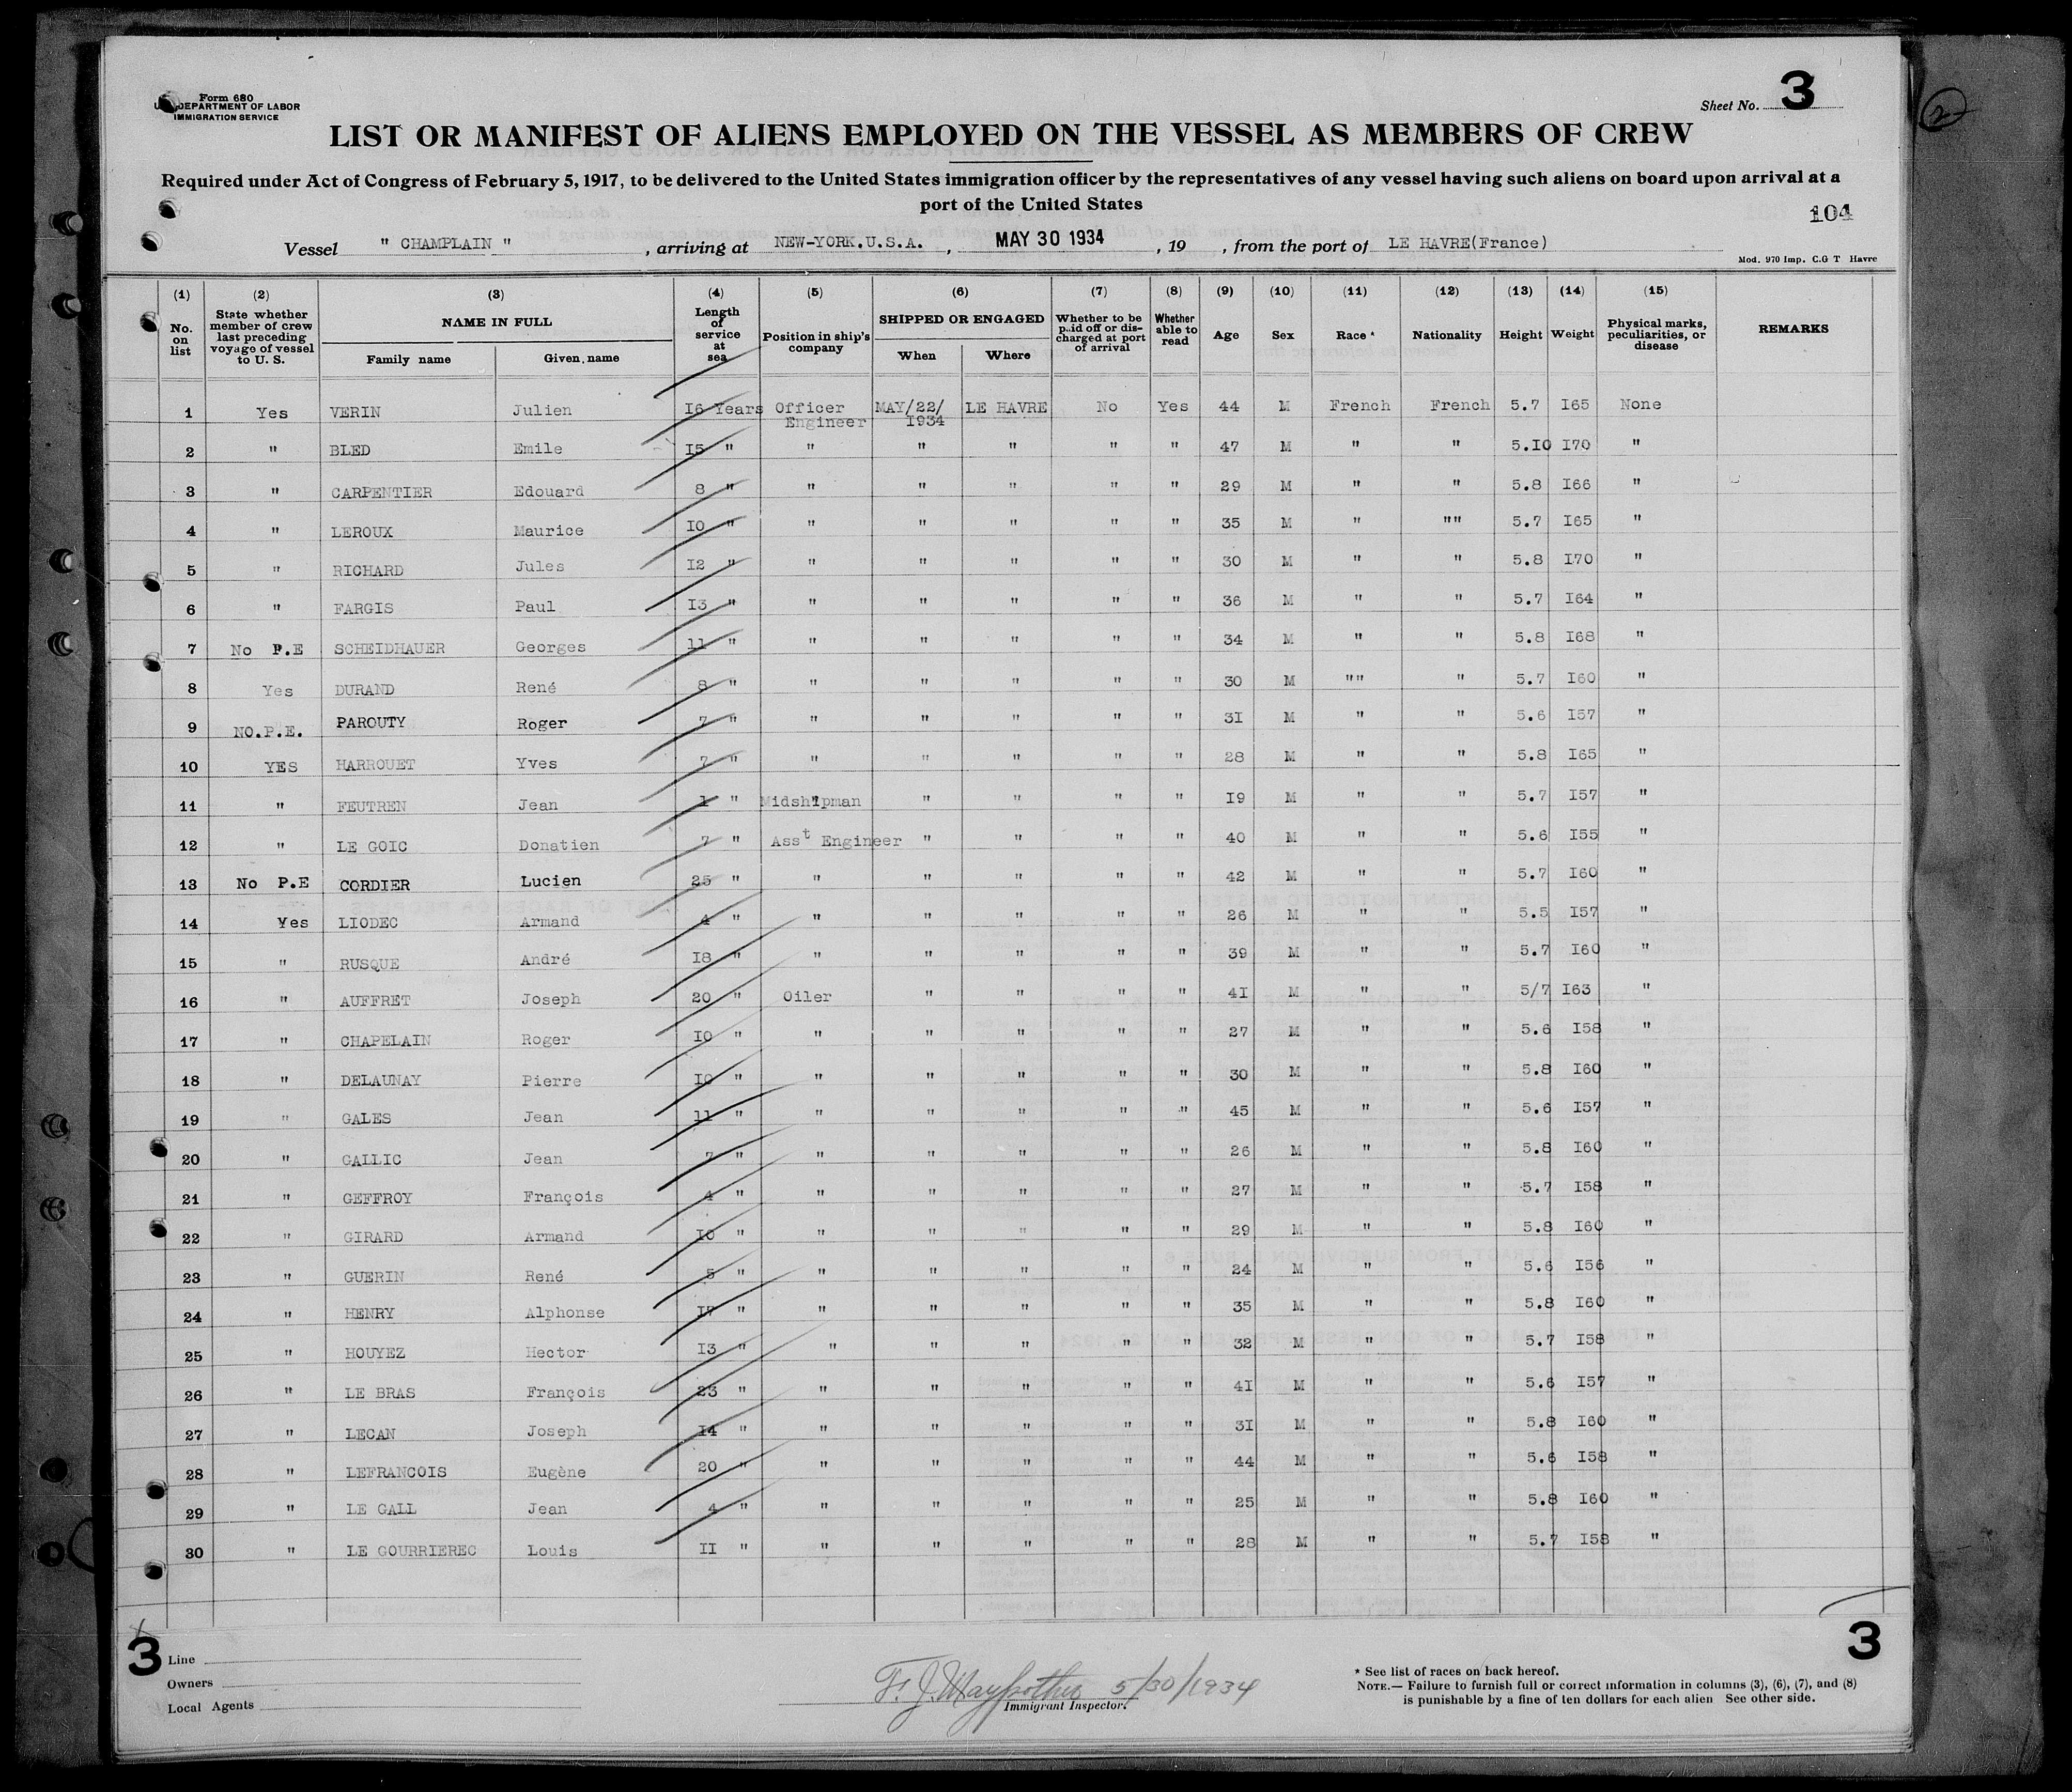 Form 680
DEPARTMENT OF LABOR
IMMIGRATION SERVICE
Sheet No. 3
2
LIST OR MANIFEST OF ALIENS EMPLOYED ON THE VESSEL AS MEMBERS OF CREW
Required under Act of Congress of February 5, 1917, to be delivered to the United States immigration officer by the representatives of any vessel having such aliens on board upon arrival at a
port of the United States
104
Vessel " CHAMPLAIN " , arriving at NEW-YORK.U.S.A. , MAY 30 1934 , 19 , from the port of LE HAVRE(France)
Mod. 970 Imp. C.G T Havre
(1) (2) (3) (4) (5) (6) (7) (8) (9) (10) (11) (12) (13) (14) (15)
No. on list State whether member of crew last preceding voyage of vessel to U. S. NAME IN FULL Family name Given name Length of service at sea Position in ship's company SHIPPED OR ENGAGED When Where Whether to be paid off or discharged at port of arrival Whether able to read Age Sex Race * Nationality Height Weight Physical marks, peculiarities, or disease REMARKS
1 Yes VERIN Julien I6 Years Officer Engineer MAY/22/ I934 LE HAVRE No Yes 44 M French French 5.7 I65 None
2 " BLED Emile I5 " " " " " " 47 M " " 5.I0 I70 "
3 " CARPENTIER Edouard 8 " " " " " " 29 M " " 5.8 I66 "
4 " LEROUX Maurice I0 " " " " " " 35 M " "" 5.7 I65 "
5 " RICHARD Jules I2 " " " " " " 30 M " " 5.8 I70 "
6 " FARGIS Paul I3 " " " " " " 36 M " " 5.7 I64 "
7 No P.E SCHEIDHAUER Georges 11 " " " " " " 34 M " " 5.8 I68 "
8 Yes DURAND René 8 " " " " " " 30 M "" " 5.7 I60 "
9 NO.P.E. PAROUTY Roger 7 " " " " " " 3I M " " 5.6 I57 "
10 YES HARROUET Yves 7 " " " " " " 28 M " " 5.8 I65 "
11 " FEUTREN Jean 1 " Midshipman " " " " I9 M " " 5.7 I57 "
12 " LE GOIC Donatien 7 " Asst Engineer " " " " 40 M " " 5.6 I55 "
13 No P.E CORDIER Lucien 25 " " " " " " 42 M " " 5.7 I60 "
14 Yes LIODEC Armand 4 " " " " " " 26 M " " 5.5 I57 "
15 " RUSQUE André I8 " " " " " " 39 M " " 5.7 I60 "
16 " AUFFRET Joseph 20 " Oiler " " " " 4I M " " 5/7 I63 "
17 " CHAPELAIN Roger I0 " " " " " " 27 M " " 5.6 I58 "
18 " DELAUNAY Pierre I0 " " " " " " 30 M " " 5.8 I60 "
19 " GALES Jean 11 " " " " " " 45 M " " 5.6 I57 "
20 " GALLIC Jean 7 " " " " " " 26 M " " 5.8 I60 "
21 " GEFFROY François 4 " " " " " " 27 M " " 5.7 I58 "
22 " GIRARD Armand I0 " " " " " " 29 M " " 5.8 I60 "
23 " GUERIN René 5 " " " " " " 24 M " " 5.6 I56 "
24 " HENRY Alphonse I7 " " " " " " 35 M " " 5.8 I60 "
25 " HOUYEZ Hector I3 " " " " " " 32 M " " 5.7 I58 "
26 " LE BRAS François 23 " " " " " " 4I M " " 5.6 I57 "
27 " LECAN Joseph I4 " " " " " " 3I M " " 5.8 I60 "
28 " LEFRANCOIS Eugène 20 " " " " " " 44 M " " 5.6 I58 "
29 " LE GALL Jean 4 " " " " " " 25 M " " 5.8 I60 "
30 " LE GOURRIEREC Louis II " " " " " " 28 M " " 5.7 I58 "
3 3
Line
Owners
Local Agents
5/30/1934
Immigrant Inspector.
* See list of races on back hereof.
NOTE.— Failure to furnish full or correct information in columns (3), (6), (7), and (8)
is punishable by a fine of ten dollars for each alien See other side.